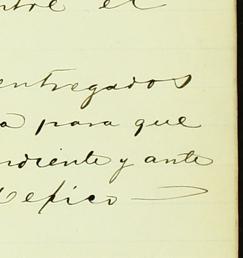 ntre el
entregados
a para que
ndiente y ante
Mexico